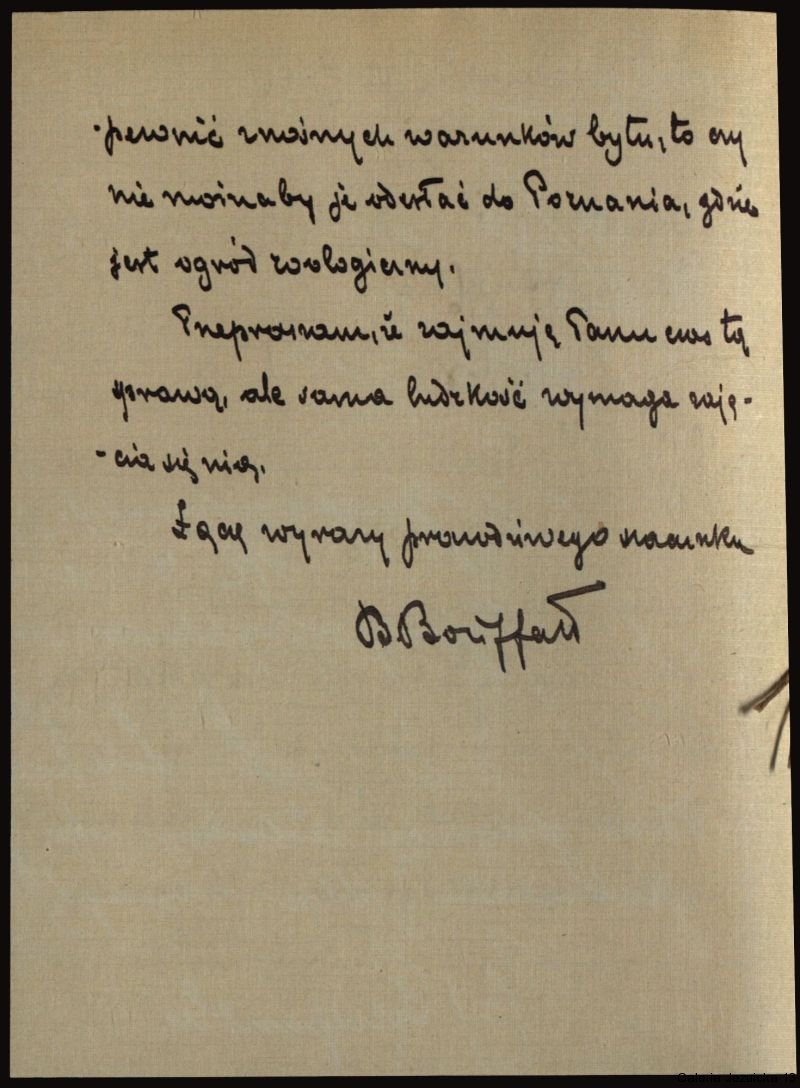 -pewnić znośnych warunków bytu, to czy
nie możnaby je odesłać do Poznania, gdzie
jest ogród zoologiczny.
Przepraszam, że zajmuję Panu czas tą
sprawą, ale sama ludzkość wymaga zaję-
-cia się nią.
Łączę wyrazy prawdziwego szacunku